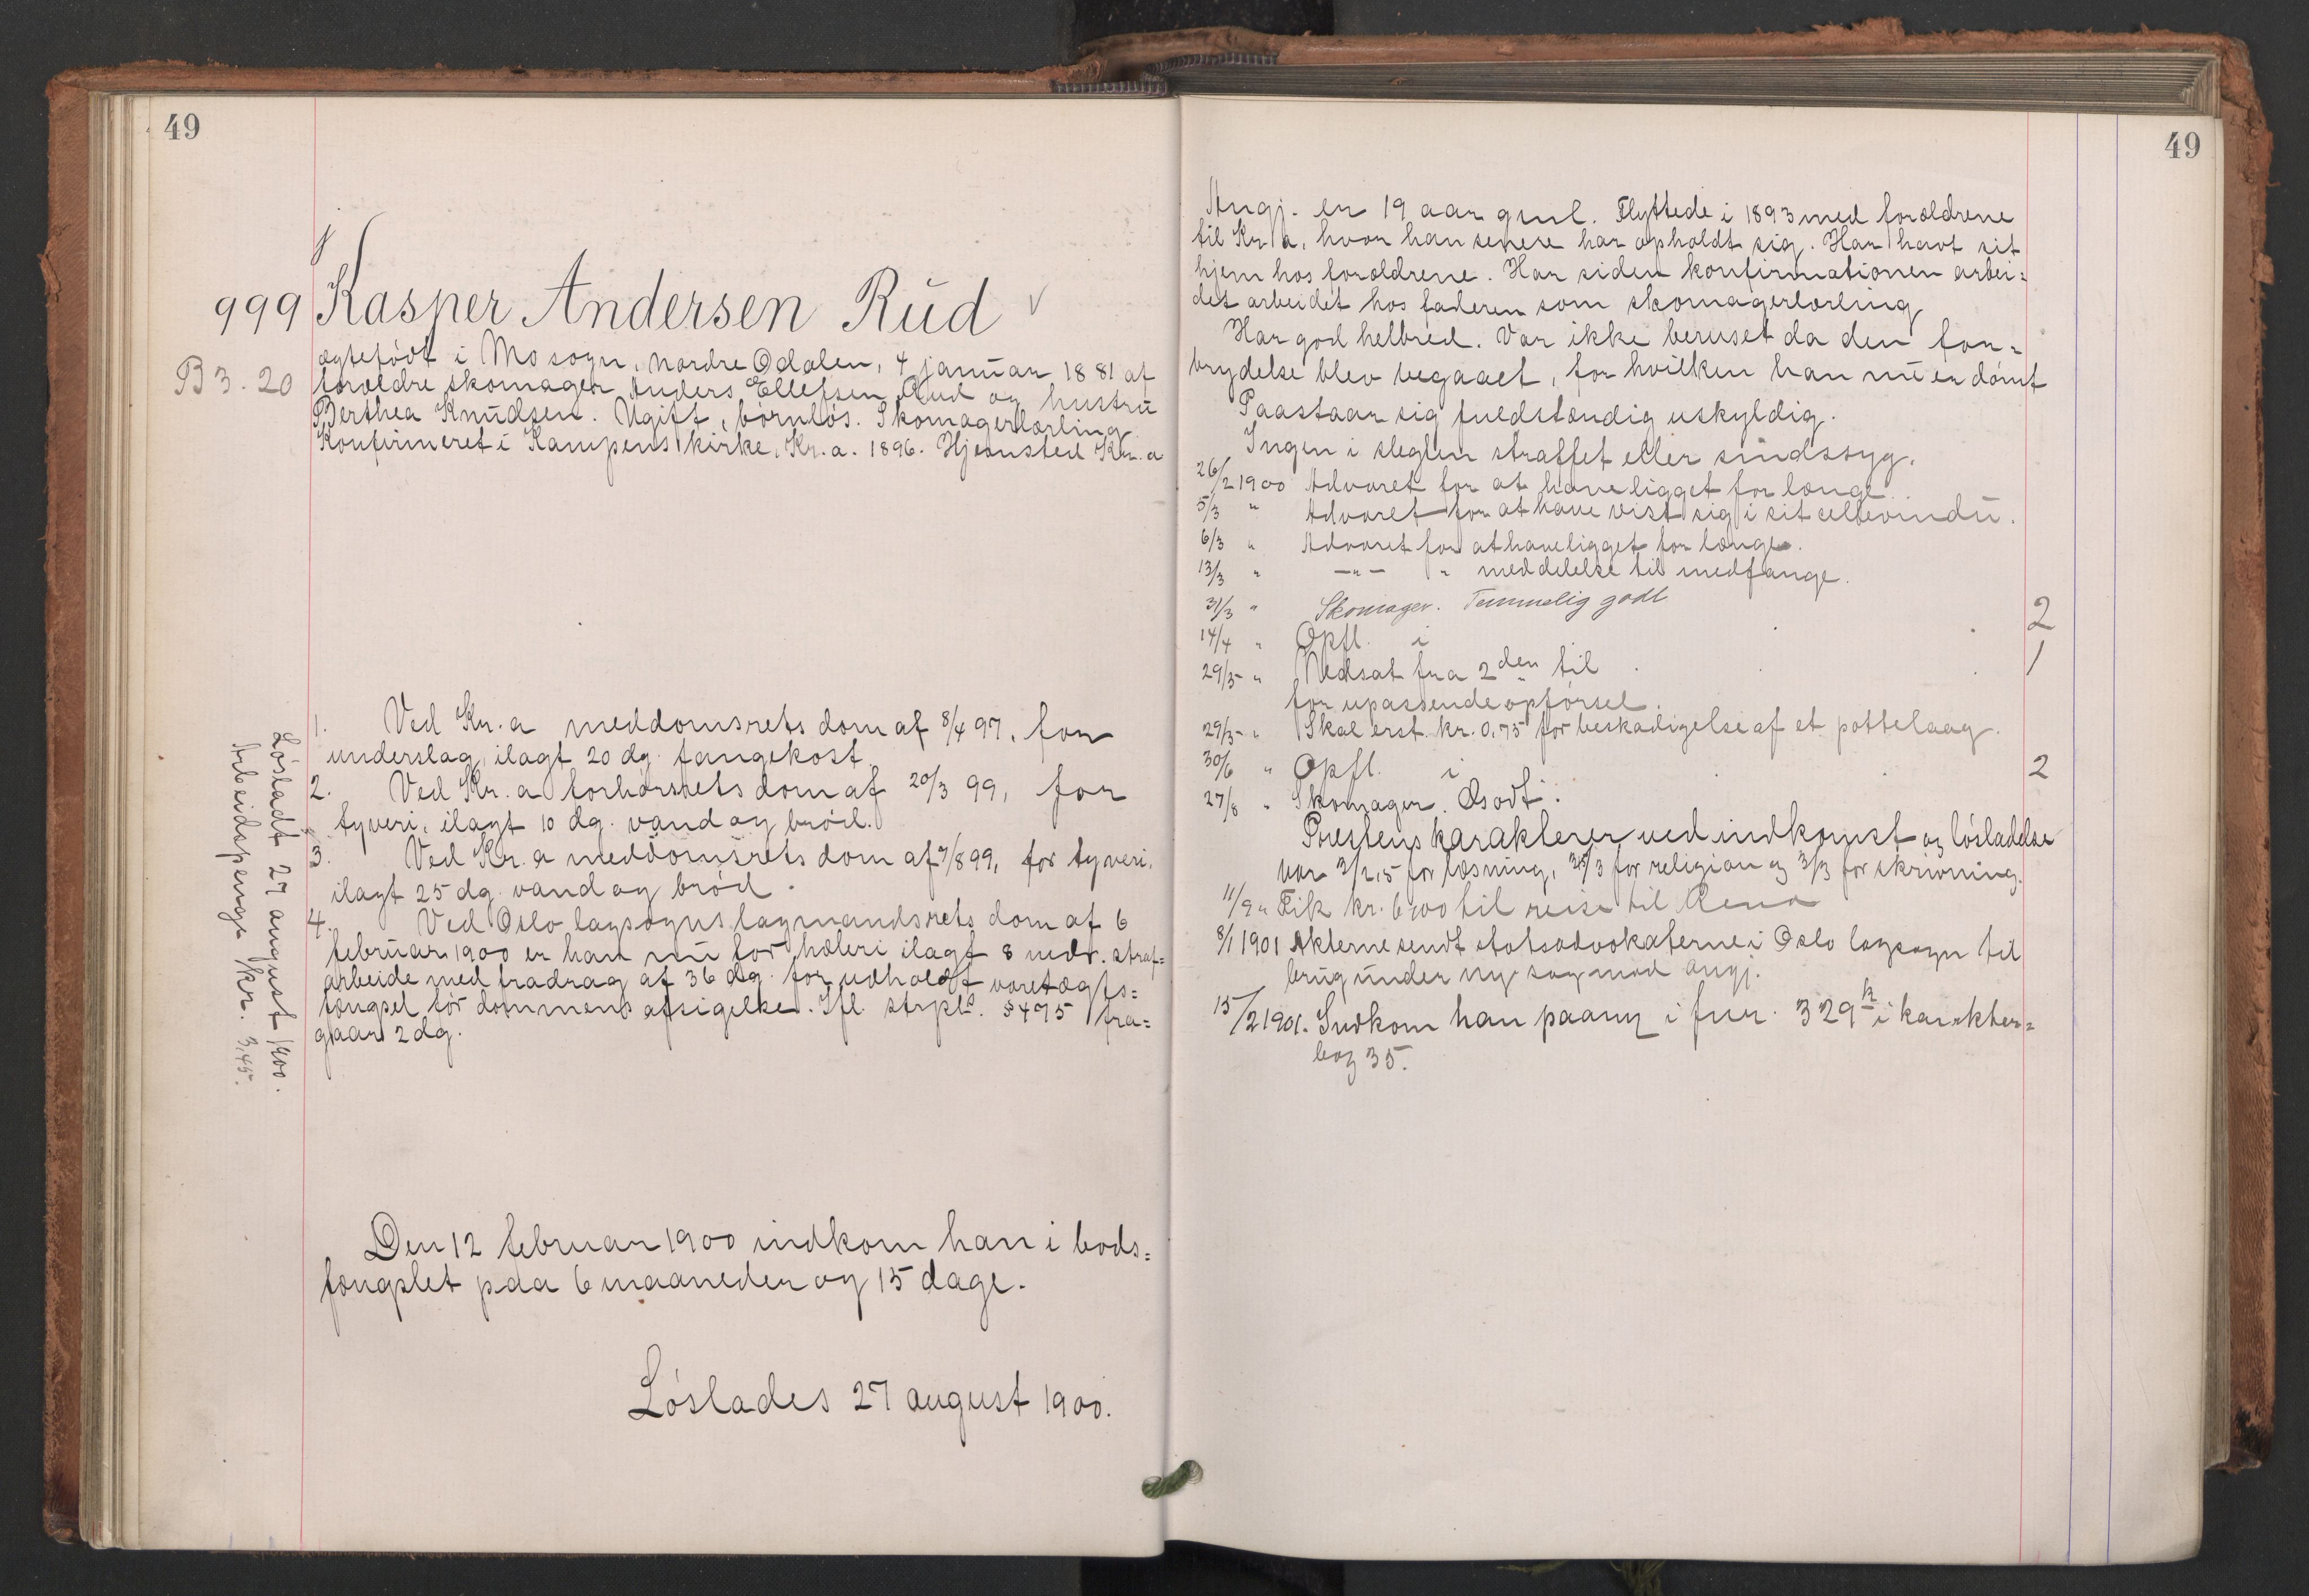 49
999 Kasper Andersen Rud
B 3. 20
ægtefödt i Mo sogn, nordre Odalen, 4 januar 1881 af
forældre skomager Anders Ellefsen Rud og hustru
Berthea Knudsen. Ugift, börnlös. Skomagerlærling
Konfirmeret i Kampens kirke, Kr.a. 1896. Hjemsted Kr.a
1. Ved Kr.a meddomsrets dom af 8/4 97, for
underslag, ilagt 20 dg. fangekost.
2. Ved Kr.a forhörsrets dom af 20/3 99, for
tyveri, ilagt 10 dg. vand og bröd.
3. Ved Kr.a meddomsrets dom af 7/8 99, for tyveri,
ilagt 25 dg. vand og bröd.
4. Ved Oslo lagsogns lagmandsrets dom af 6
februar 1900 er han nu for hæleri ilagt 8 mdr. straf=
arbeide med fradrag af 36 dg. for udholdt varetægts=
fængsel för dommens afsigelse. Ifl. strpl. § 475 fra=
gaar 2 dg.
Lösladt 27 august 1900.
Arbeidspenge kr. 3,45.
Den 12 februar 1900 indkom han i bods=
fængslet paa 6 maaneder og 15 dage.
Löslades 27 august 1900.
49
Angj. er 19 aar gml. Flyttede i 1893 med forældrene
til Kr.a, hvor han senere har opholdt sig. Har havt sit
hjem hos forældrene. Har siden konfirmationen arbei=
det arbeidet hos faderen som skomagerlærling
Har god helbred. Var ikke beruset da den for=
brydelse blev begaaet, for hvilken han nu er dömt
Paastaar sig fuldstændig uskyldig.
Ingen i slegten straffet eller sindssyg.
26/2 1900 Advaret for at have ligget for længe.
5/3 " Advaret for at have vist sig i sit cellevindu.
6/3 " Advaret for at have ligget for længe.
13/3 " —"— " meddelelse til medfange.
31/3 " Skomager. Temmelig godt
14/4 " Opfl. i 2
29/5 " Nedsat fra 2den til 1
for upassende opförsel.
29/5 " Skal erst. kr. 0,75 for beskadigelse af et pottelaag.
30/6 " Opfl. i 2
27/8 " Skomager. Godt.
Prestens karakterer ved indkomst og lösladelse
var 3/2,5 for læsning, for religion og 3/3 for skrivning.
11/9 " Fik kr. 6,00 til reise til Rena
8/1 1901 Akterne sendt statsadvokaterne i Oslo lagsogn til
brug under ny sag mod angj.
15/2 1901. Indkom han paany i fnr. 329 i karakter=
bog 35.